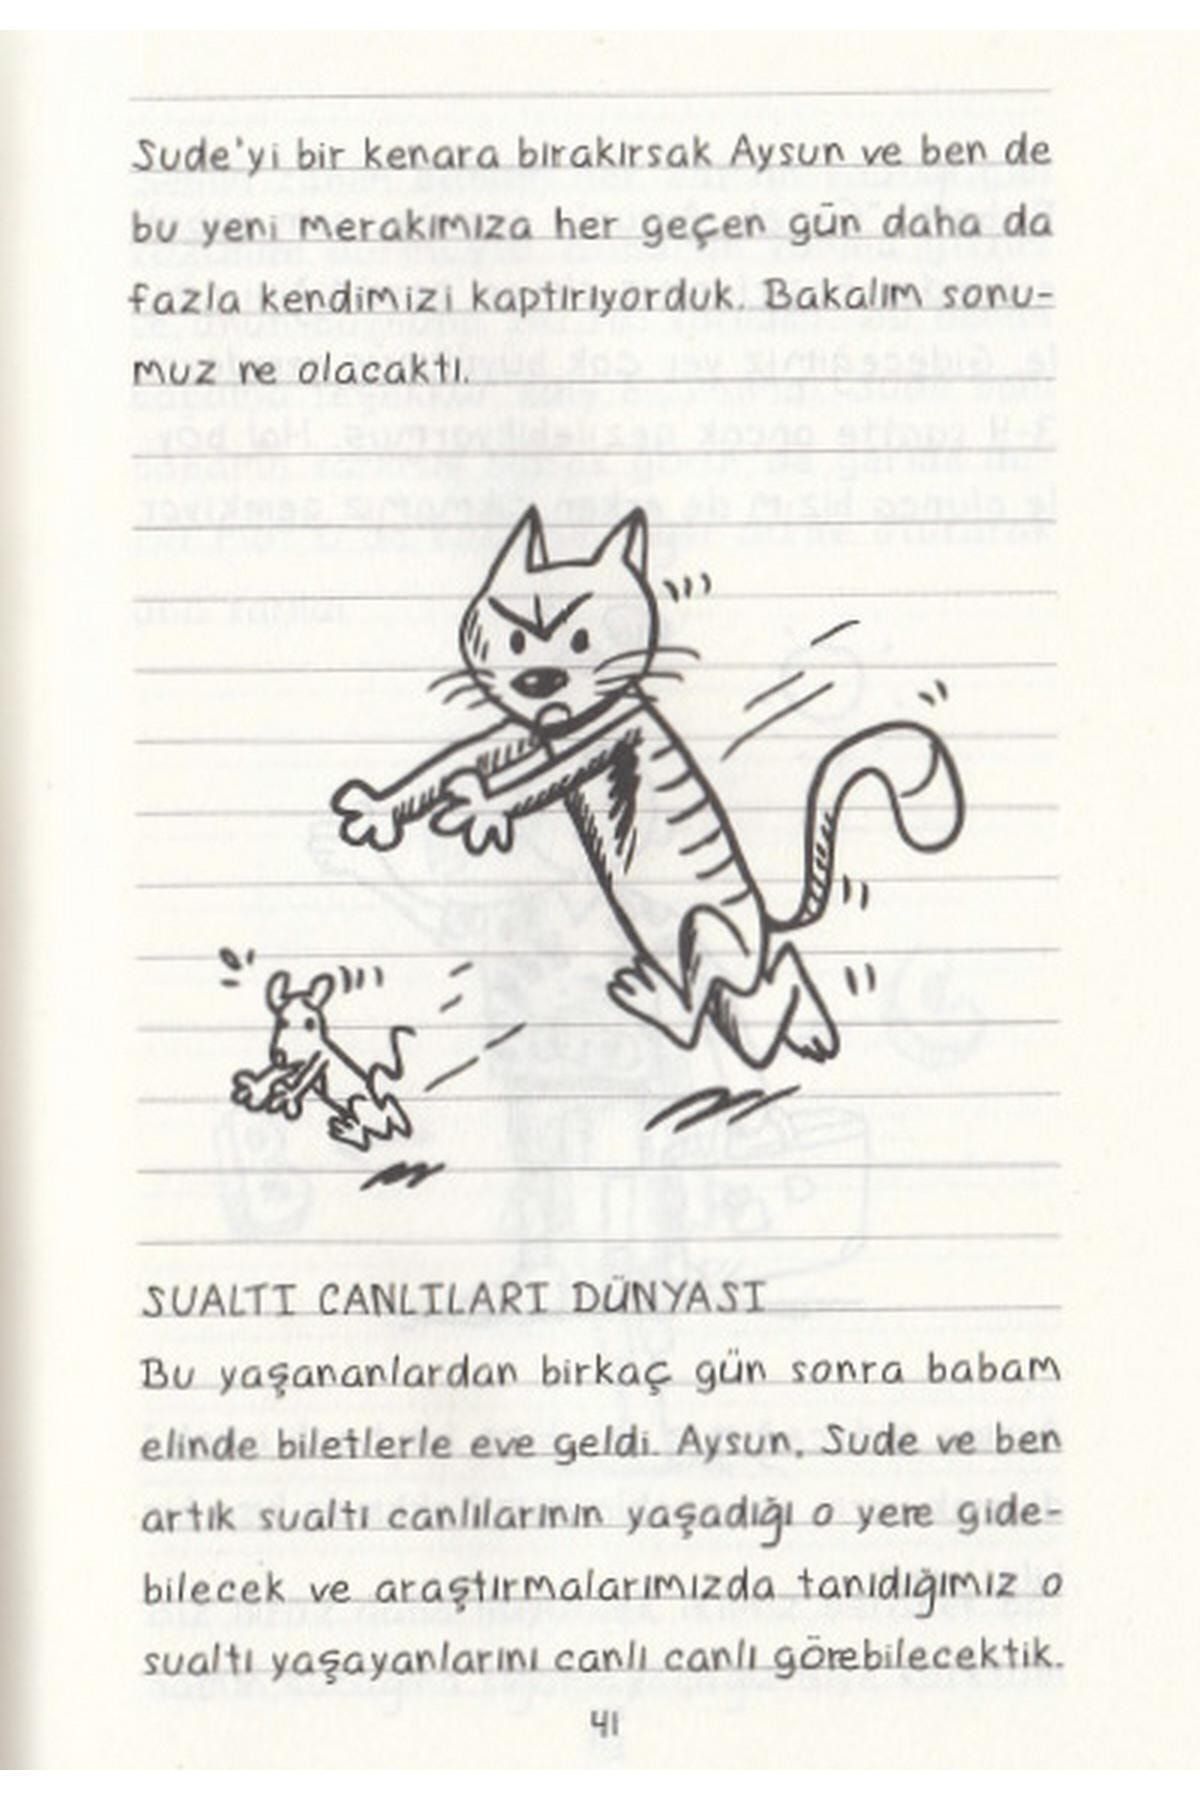 Sude'yi bir kenara bırakırsak Aysun ve ben de
bu yeni merakımıza her geçen gün daha da
fazla kendimizi kaptırıyorduk. Bakalım sonu-
muz ne olacaktı.
SUALTI CANLILARI DÜNYASI
Bu yaşananlardan birkaç gün sonra babam
elinde biletlerle eve geldi. Aysun, Sude ve ben
artık sualtı canlılarının yaşadığı o yere gide-
bilecek ve araştırmalarımızda tanıdığımız o
sualtı yaşayanlarını canlı canlı görebilecektik.
41